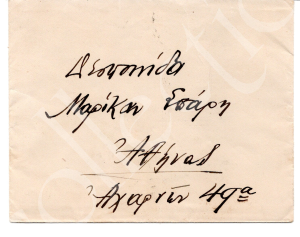 Δεσποινίδα
Μαρίκαν Σπάρη
Ἀθήνας
Ἀχαρνῶν 49α